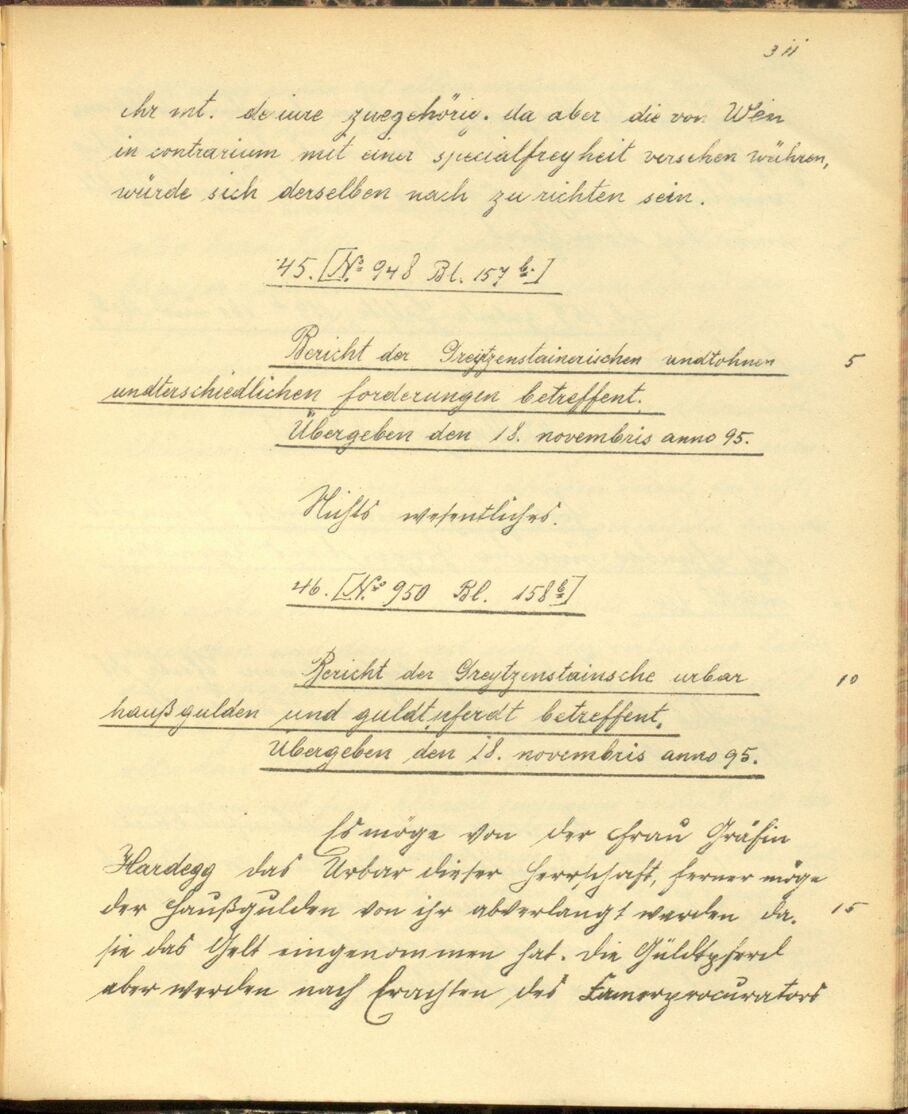 311
ihr mt. de iure zuegehörig. da aber die von Wien
in contrarium mit einer specialfreyheit versehen wühren,
würde sich derselben nach zu richten sein.
45. [No 948 Bl. 157 b.]
Bericht der Greytzenstainerischen undtohnen
5
undterschiedlichen forderungen betreffent.
Übergeben den 18. novembris anno 95.
Nichts wesentliches.
46. [No 950 Bl. 158 b]
Bericht der Greytzenstainsche urbar
10
haußgulden und guldtpferdt betreffent.
Übergeben den 18. novembris anno 95.
Es möge von der Frau Gräfin
Hardegg das Urbar dieser Herrschaft, ferner möge
der Haußgulden von ihr abverlangt werden da.
15
sie das Gelt eingenommen hat. die Güldtpferd
aber werden nach Erachten des Kamerprocurators